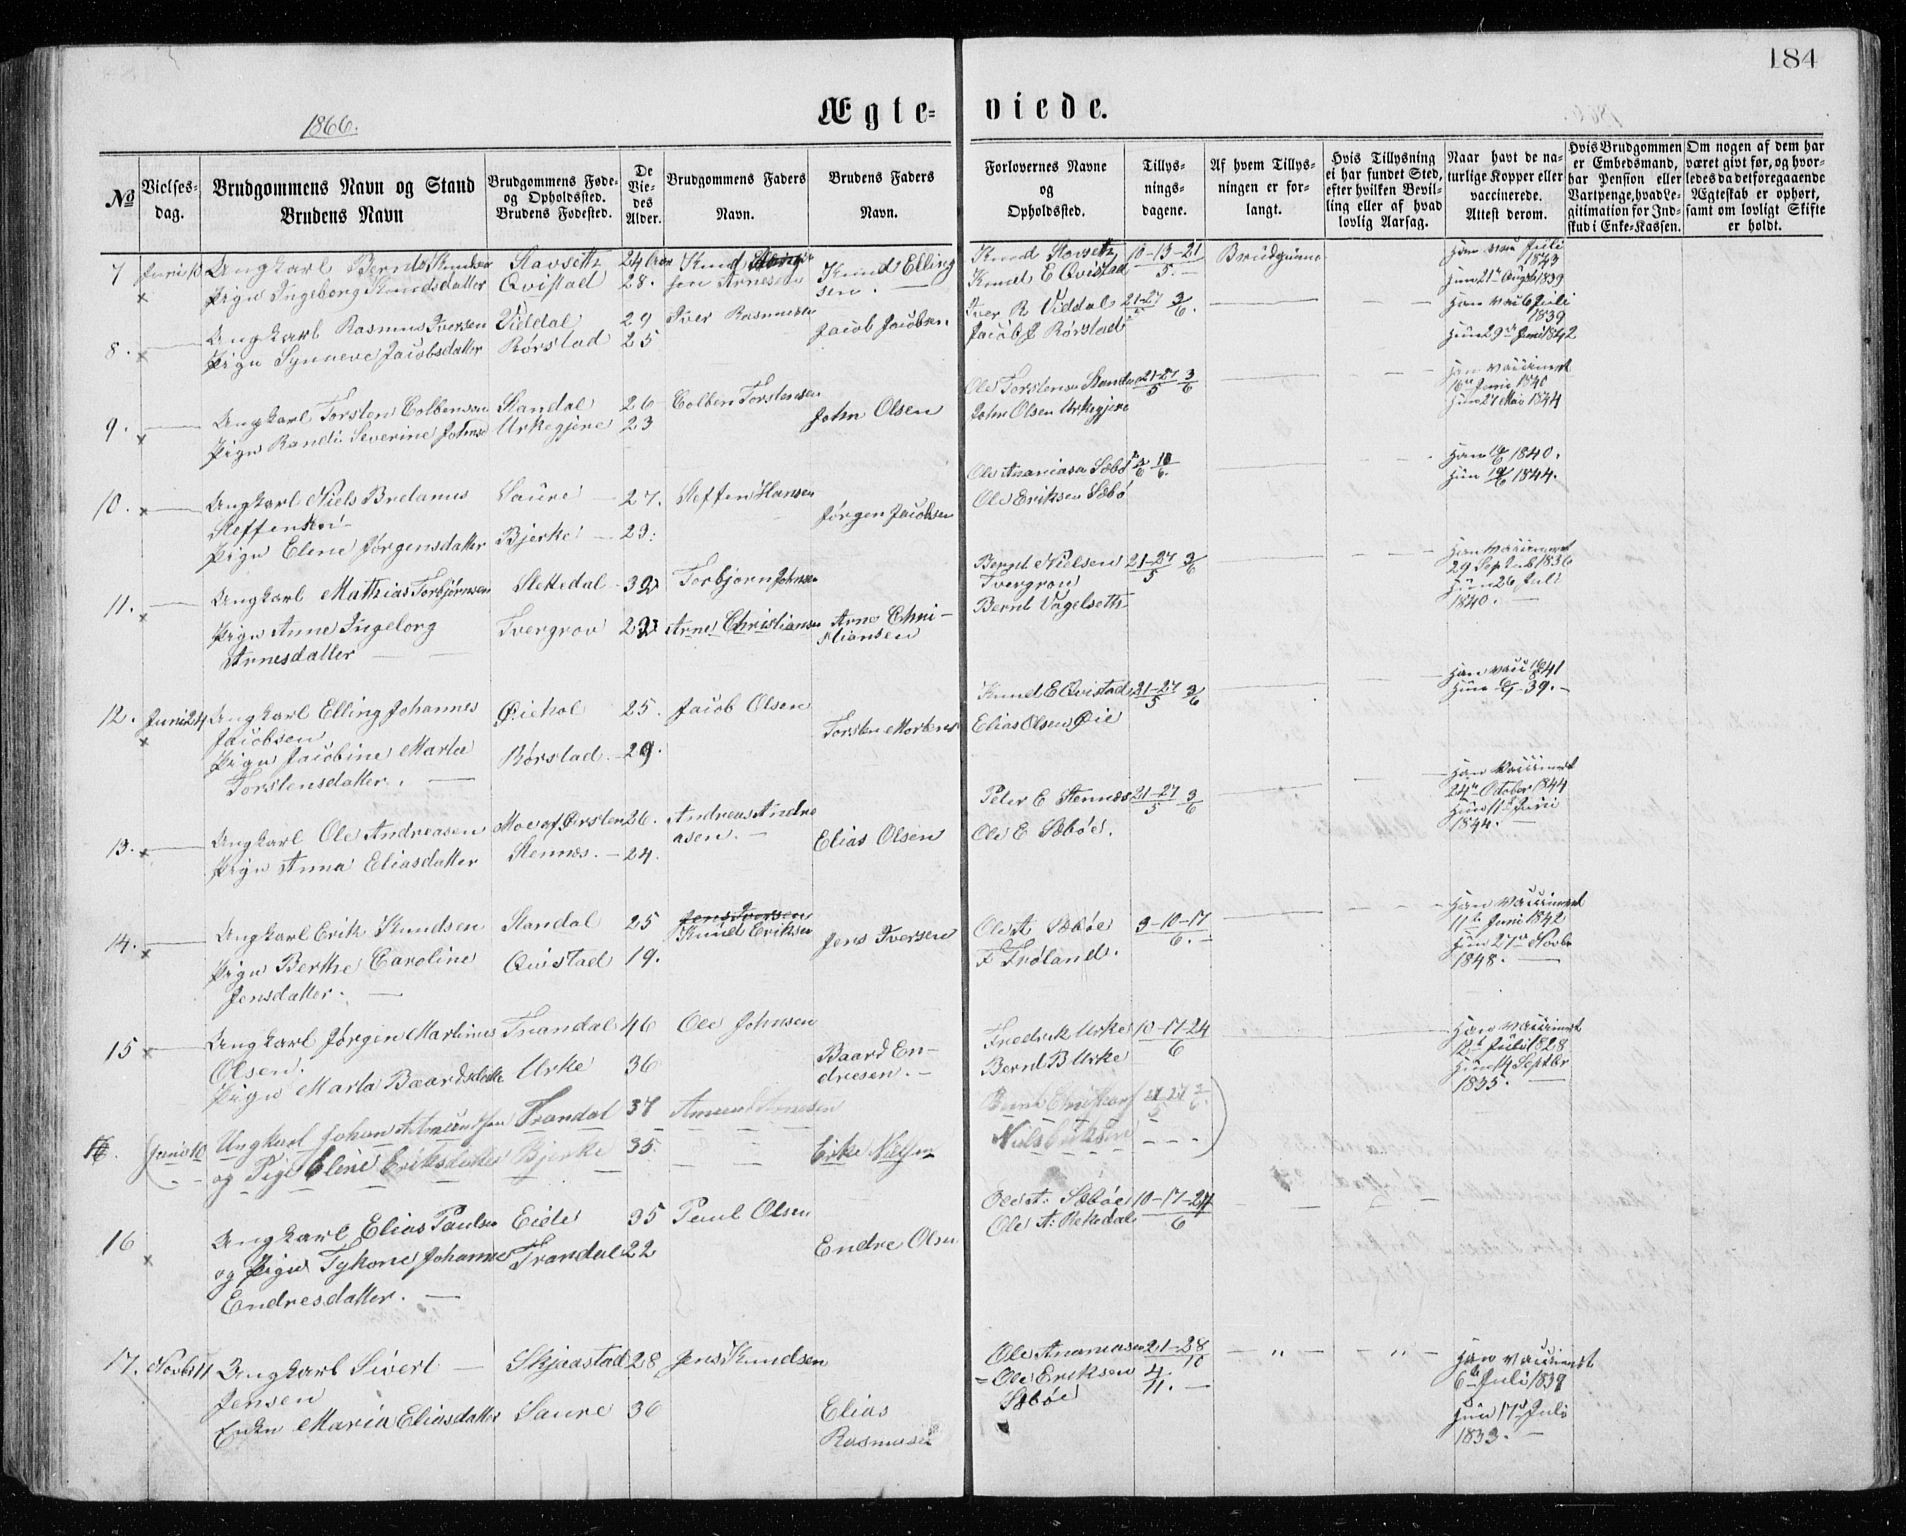 184
Ægte- viede.
1866.
No
Vielses-
dag.
Brudgommens Navn og Stand
Brudens Navn
Brudgommens Føde-
og Opholdssted.
Brudens Fødested.
De
Vie-
des
Alder.
Brudgommens Faders
Navn.
Brudens Faders
Navn.
Forlovernes Navne
og
Opholdssted.
Tillys-
nings-
dagene.
Af hvem Tillys-
ningen er for-
langt.
Hvis Tillysning
ei har fundet Sted,
efter hvilken Bevil-
ling eller af hvad
lovlig Aarsag.
Naar havt de na-
turlige Kopper eller
vaccinerede.
Attest derom.
Hvis Brudgommen
er Embedsmand,
har Pension eller
Vartpenge, hvad Le-
gitimation for Ind-
skud i Enke-Kassen.
Om nogen af dem har
været givt før, og hvor-
ledes da det foregaaende
Ægteskab er ophørt,
samt om lovligt Skifte
er holdt.
7 Juni 10 Ungkarl Bernt Knudsen Stavseth 24 Aar Knud Arnesen Knud Elling- Knud Stavseth 10-13-21 Brudgummen
x Pige Ingeborg Knudsdatter Qvistad 28. sen. Knud E Qvistad 5. Hun 21de August 1839
8. Ungkarl Rasmus Iversen Viddal 29 Iver Rasmussen Jacob Jacobsen Iver R Viddal 21-27 3/6. Han 6 Juli 1839
x Pige Synneve Jacobsdatter Rørstad 25 Jacob J Rørstad Hun 29de Juni 1842
9. Ungkarl Torsten Colbensen Standal 26 Colben Torstensen John Olsen Ole Torstensen Standal 21-27 3 Han vaccineret
x Pige Randi Severine Johns Urkegjere 23 John Olsen Urkegjere 5 6 16de Juni 1840
Hun 27 Mai 1844
10. Ungkarl Niels Bredanus Saure 27. Steffen Hansen Jørgen Jacobsen Ole Ananiasen Sæbø Han 1840.
x Steffensen Ole Eriksen Sæbø Hun 1844.
Pige Eline Jørgensdatter Bjerke 23.
11. Ungkarl Mathias Torbjørnsen Slettedal 32 Torbjørn Johnsen Bernt Nielsen 21-27 3 Han vaccineret
x Pige Anne Ingeborg Tvergrov 23 Arne Christiansen Arne Chri- Tvergrov 5 6 29 Septb 1836
Arnesdatter stiansen Bernt Vagelseth Hun 26 Juli
1840.
12. Juni 24 Ungkarl Elling Johannes Øiehol 25. Jacob Olsen Torsten Mortens Knud E Qvistad 21-27 3 Han 1841
x Jacobsen Elias Olsen Øie 5 6 Hun 39.
Pige Jacobine Marta Rørstad 29.
Torstensdatter.
13. Ungkarl Ole Andreasen Moe af Ørsten 26. Andreas Andre- Elias Olsen Peter E Stennes 21-27 3 Han vaccineret
x Pige Anna Eliasdatter Stennes. 24. asen. Ole E Sæbøe. 5 6 24de October 1844
Hun 11te Juni
1844.
14. Ungkarl Erik Knudsen Standal 25 Jens Iversen Jens Iversen Ole A Sæbøe 3-10-17 Han vaccineret
x Pige Berthe Caroline Qvistad 19. Knud Eriksen F Frøland. 6. 11te Juni 1842
Jensdatter. Hun 27de Novbr
1848.
15 Ungkarl Jørgen Martinus Trandal 46 Ole Johnsen Baard En- Fredrik Urke 10-17-24 Han vaccineret
x Olsen. dresen. Bernt B Urke 6 12te Juli 1828
Pige Marta Baardsdatter Urke 36 Hun 14 Septbr
1835.
16. Juni 10 Ungkarl Johan Amundsen Trandal 37 Amund Arnesen 21 27 3/6.
og Pige Eline Eriksdatter Bjerke 35. Erik Nilsen Nils Eriksen
16 Ungkarl Elias Paulsen Eide 35 Paul Olsen Endre Olsen Ole A. Sæbøe 10-17-24
x og Pige Tykone Johanne Trandal 22 Ole A. Rekkedal 6
Endresdatter.
17. Novbr 11 Ungkarl Sivert Skjaastad 28 Jens Knudsen Elias Ole Ananiasen 21-28 Han vaccineret
Jensen Rasmusen Ole Eriksen 10 6te Juli 1839
Enke Maria Eliasdatter Saure 36 Sæbøe 4/11. Hun 17de Juli
1833.